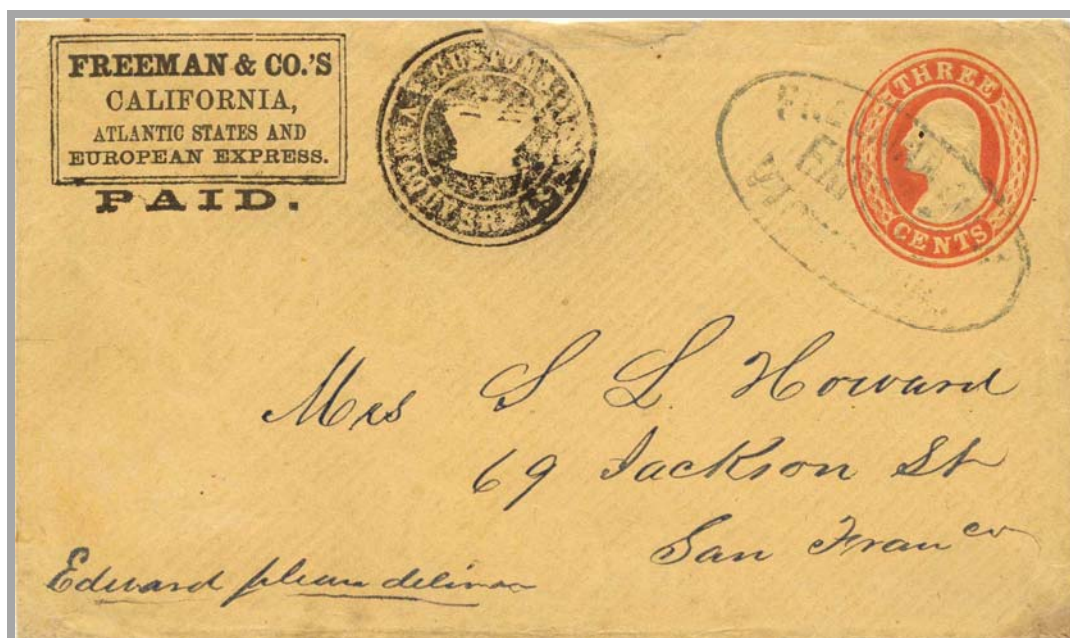 FREEMAN & CO.'S
CALIFORNIA,
ATLANTIC STATES AND
EUROPEAN EXPRESS.
PAID.
THREE
CENTS
Mrs S L Howard
69 Jackson St
San Franco
Edward please deliver